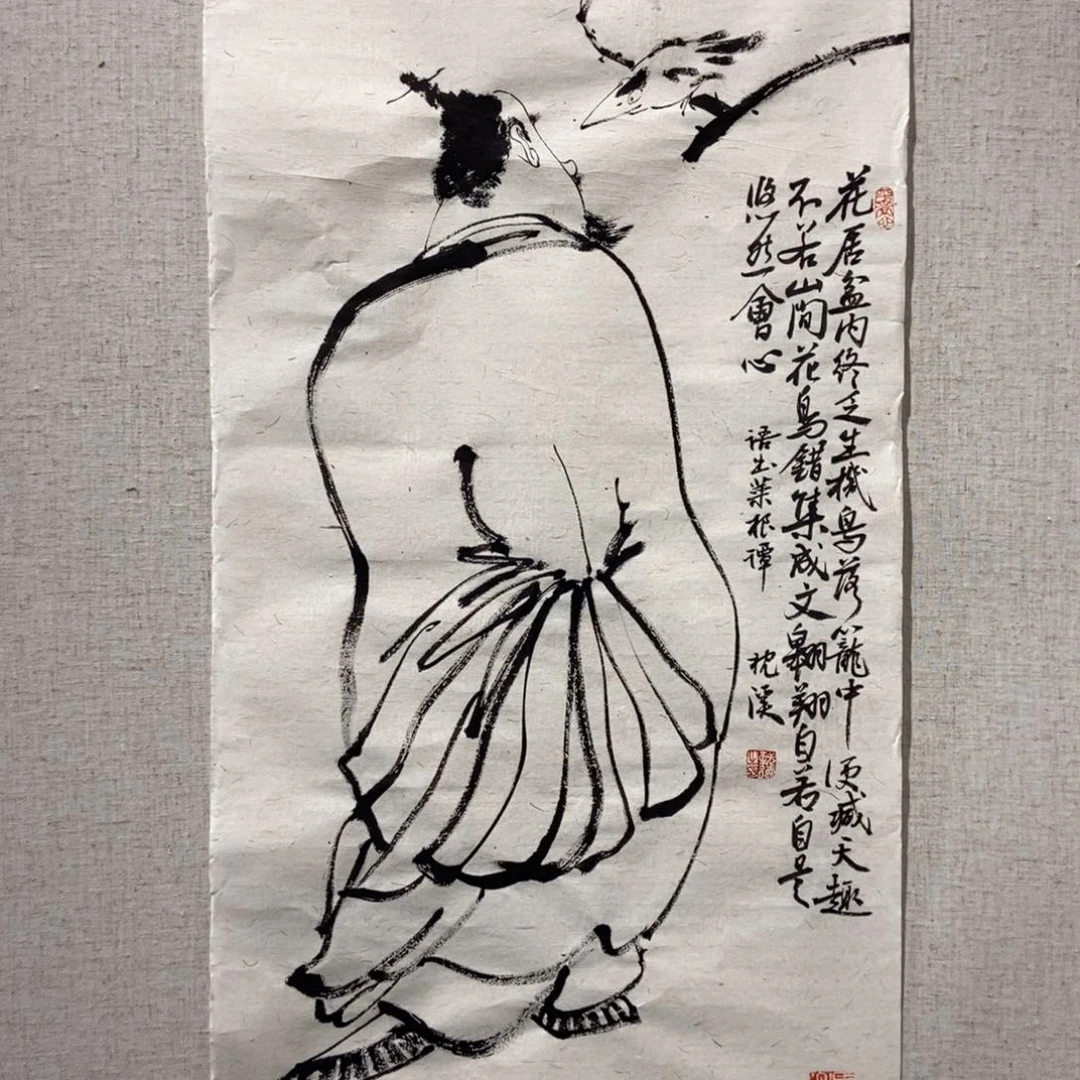 花居盆内终乏生機鳥落籠中便减天趣
不若山间花鳥錯集成文翱翔自若自是
悠然會心
语出菜根谭
枕溪